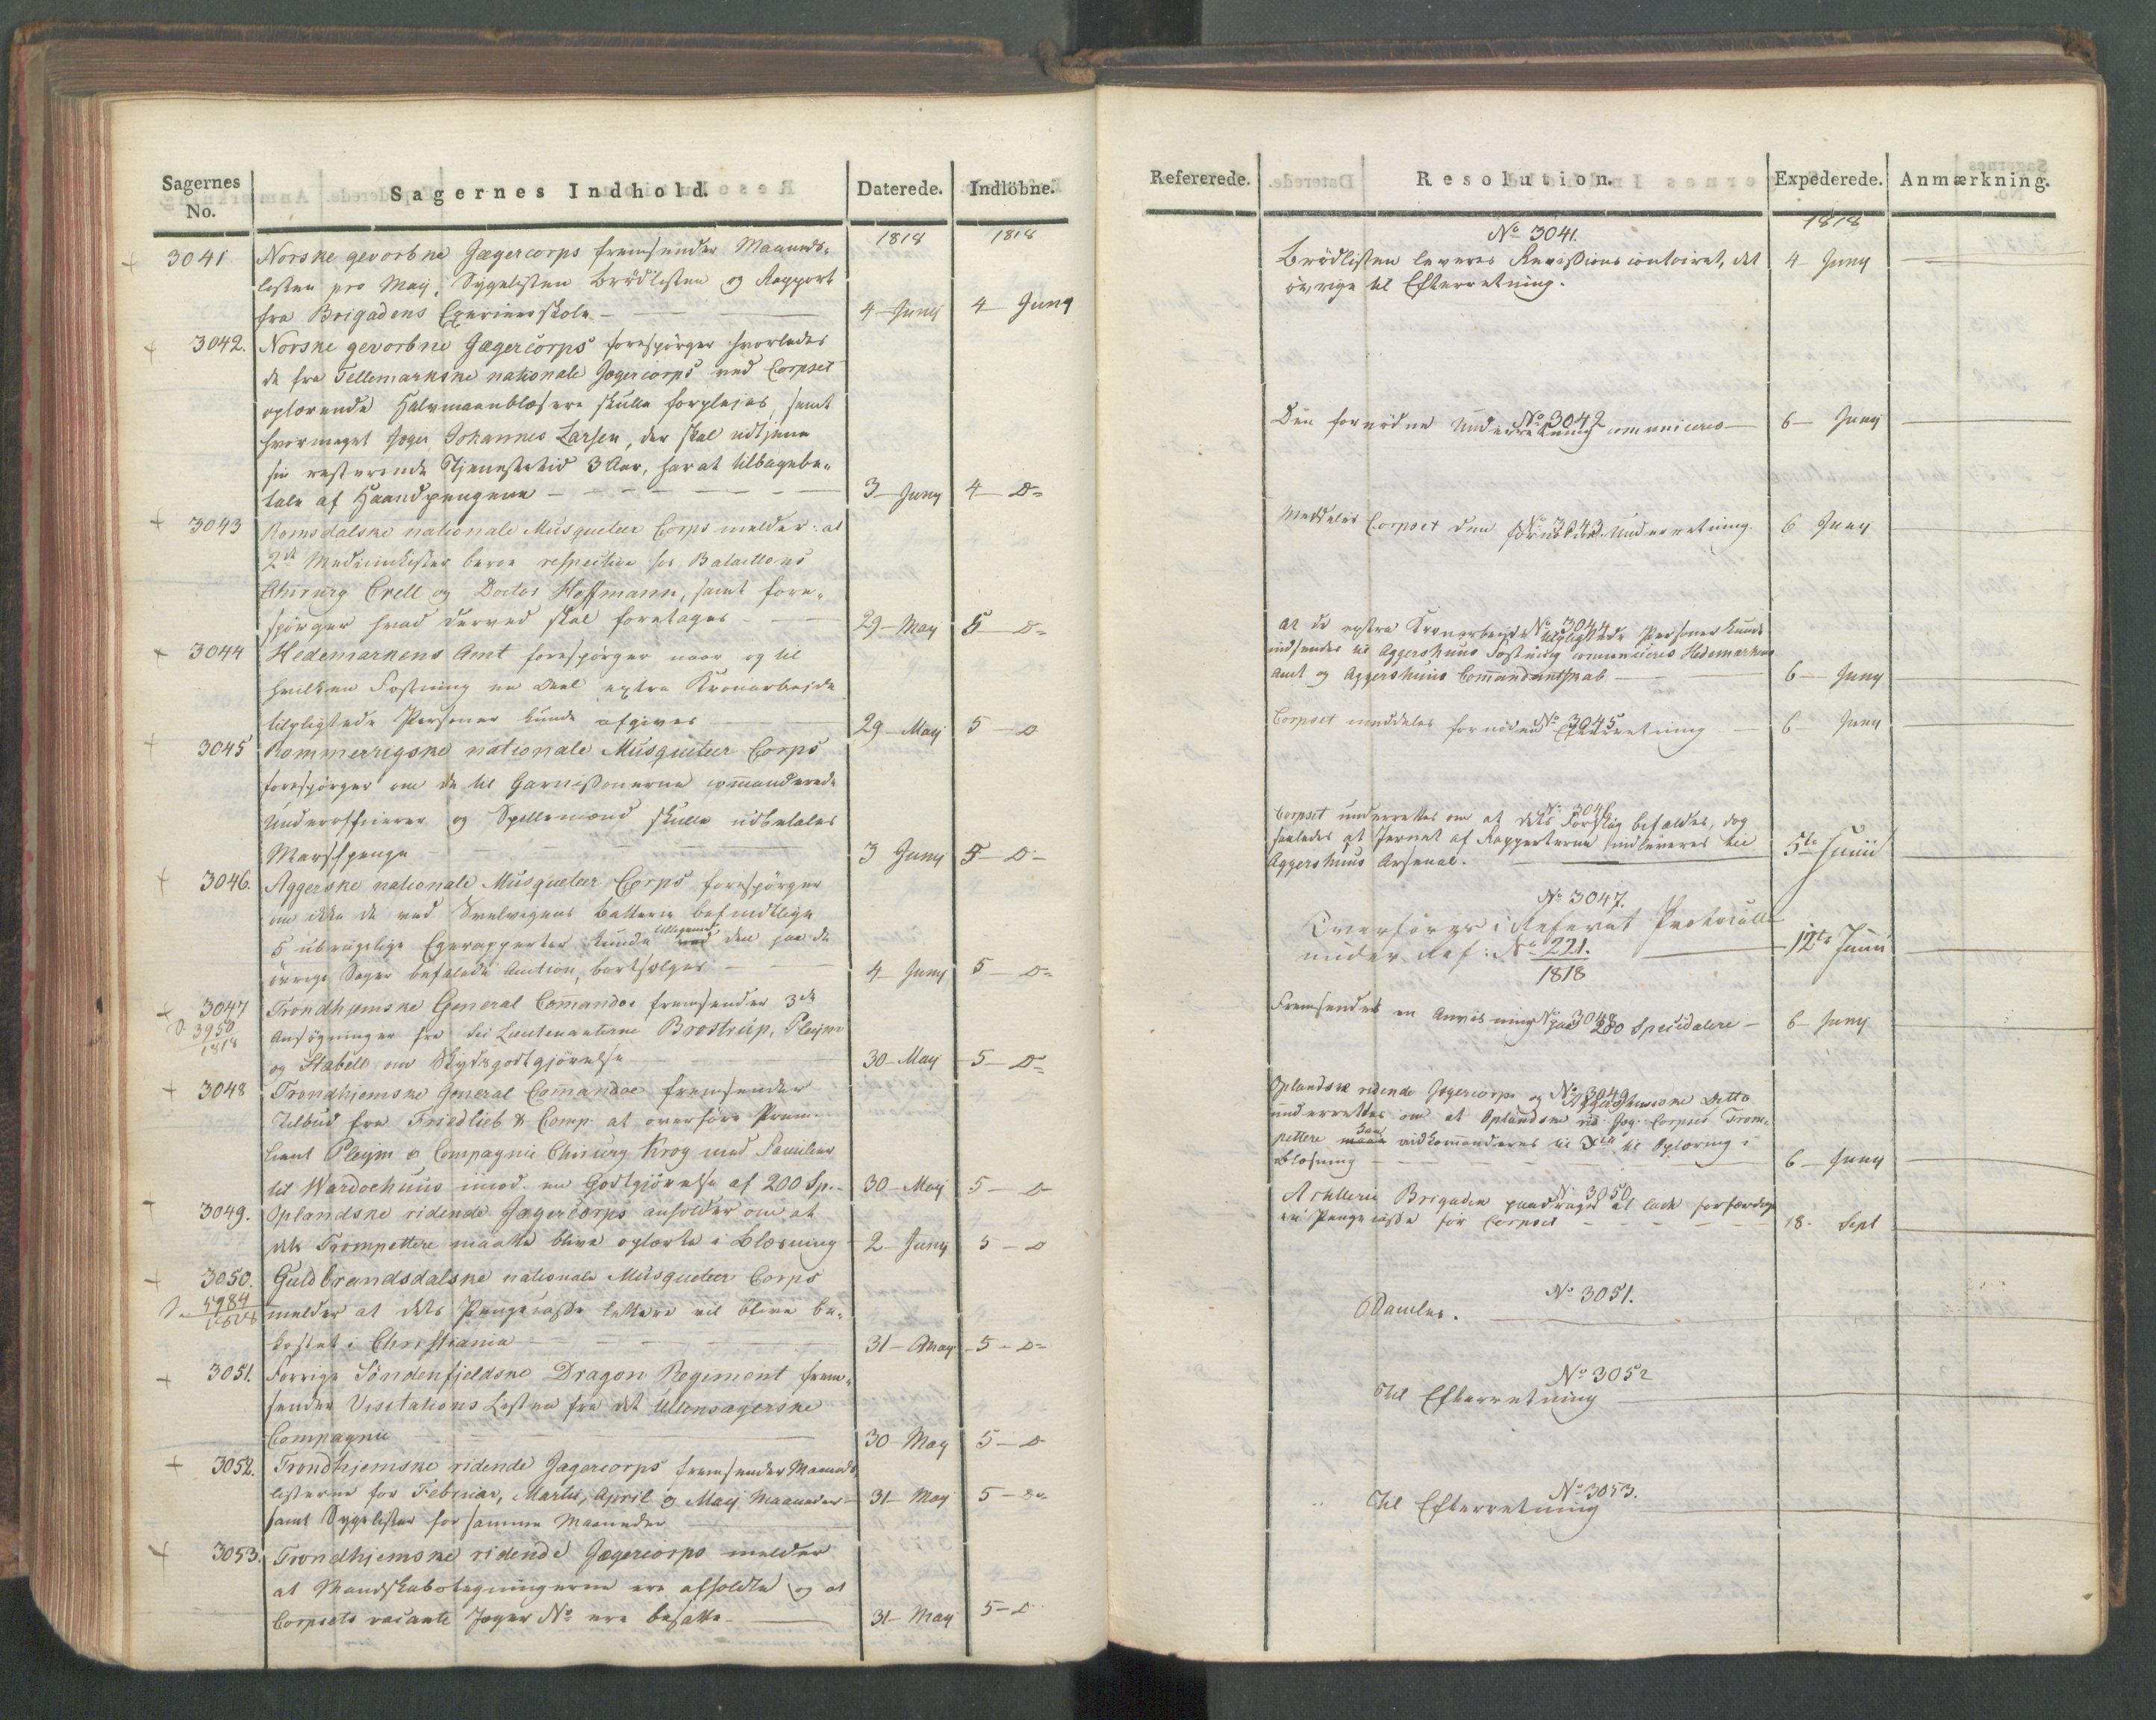 Sagernes No.
Sagernes Indhold.
Daterede.
Indlöbne.
1818
1818
3041
Norske gevorbne Jægercorps fremsender Maaneds-
listen pro Maij, Sygelisten Brödlisten og Rapport
fra Brigadens Exerceerskole
4 Junij
4 Juny
3042.
Norske gevorbne Jægercorps forespörger hvorledes
de fra Tellemarkske nationale Jægercorps ved Corpset
oplærende Halvmaanblæsere skulle forplejes, samt
hvormeget Jæger Johannes Larsen, der skal udtjene
sin resterende Tjenestetid 3 Aar, har at tilbagebe-
tale af Haandpengene
3 Juny
4 D=
3043
Romsdalske nationale Musqueteer Corps melder: at
2de Medicinkister beroe respective hos Batallions
Chirurg Crell og Doctor Hoffmann, samt fore-
spörger hvad derved skal foretages
29 May
5 D=
3044
Hedemarkens Amt forespörger naar og til
hvilken Fæstning en Deel extra Kronarbejde
tilpligtede Personer kunde afgives
29 Maij
5 D
3045
Rommerrigske nationale Musqueteer Corps
forespörger om de til Garnisonerne commanderede
Underofficierer og Spillemænd skulle udbetales
Marschpenge
3 Junij
5 D
3046.
Aggerske nationale Musqueteer Corps forespörger
om ikke de ved Svelvigens Batterie befindtlige
5 ubrugelige kunde tilligemed den paa de
övrige Sager befalede Auction, bortsælges
4 Juny
5 D=
3047
3950
1818
Trondhjemske General Commandoe fremsender 3de
Ansögninger fra Sec Lieutenanterne Brostrup, Pleym
og Stabell om Skydsgodtgjörelse
30 Maij
5 D=
3048
Trondhjemske General Commandoe fremsender
Tilbud fra Friedlieb & Comp. at overföre Prem.
Lieut Pleym & Compagnie Chirurg Krog med Familier
til Wardoehuus imod en Godtgjörelse af 200 Sp.
30 Maij
5 D
3049.
Oplandske ridende Jægercorps anholder om at
dets Trompettere maatte blive oplærte i Blæsning
2 Junij
5 D
3050.
5984
1818
Guldbrandsdalske nationale Musqueteer Corps
melder at dets Pengecasse lettere vil blive be-
kostet i Christiania
31 May
5 D=
3051.
Forrige Söndenfjeldske Dragon Regiment frem-
sender Visitations Listen fra det Ullensagerske
Compagnie
30 May
5 D
3052.
Trondhjemske ridende Jægercorps fremsender Maaneds
listerne for Februar, Martii, April og Maij Maaneder
samt Sygelister for samme Maaneder
31 May
5 Do
3053.
Trondhjemske ridende Jægercorps melder
at Mandskabstegningerne ere afholdte og at
Corpsets vacante Jæger No ere besatte
31 May
5 D
Refererede.
Resolution.
Expederede.
Anmærkning.
1818
No 3041.
Brödlisten leveres Revisions contoiret, det
övrige til Efterretning.
4 Juny
No 3042
Den fornödne Underretning communiceres
6 Junij
No 3043
Meddeles Corpset den fornödne Underretning.
6 Juny
No 3044
at de extra Kronarbejde tilpligtede Personer kunde
indsendes til Aggershuus Fæstning communiceres Hedemarkens
Amt og Aggershuus Commandantskab
6 Juny
No 3045
Corpset meddeles fornöden Efterretning
6 Juny
No 3046
Corpset underrettes om at dets Forslag bifaldes, dog
saaledes at Jernet af Rapperterne indleveres til
Aggershuus Arsenal.
5te Junii
No 3047.
Overföres i Referat Protocollen
under Ref: No 221.
1818
12te Junii
No 3048
Fremsendes en Anvisning paa 200 Speciedalere
6 Juny
No 3049
Oplandske ridende Jægercorps og Aggershuuske Ditto
underrettes om at Oplandske rid. Jæg. Corpses Trom-
pettere kan vidkommanderes til til Oplæring i
Blæsning
6 Juny
No 3050
Artillerie Brigaden paadrages at lade forfærdige
en Pengecasse for Corpset
18. Sept
No 3051.
Samles.
No 3052
Til Efterretning
No 3053.
Til Efterretning